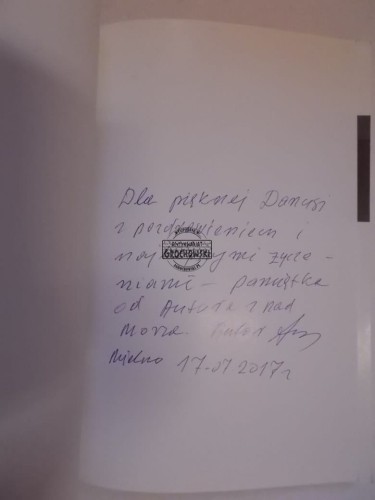 Dla pięknej Danusi
z pozdrowieniem i
życze-
niami - pamiątka
od Autora znad
morza.
ANTYKWARIAT
GROCHOWSKI
Mielno 17.07.2017r